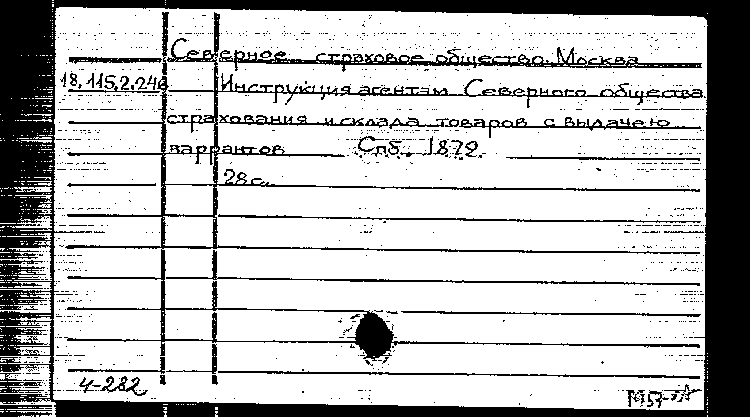 Северное страховое общество. Москва
18.115.2.246
Инструкция агентам Северного общества
страхования и склада товаров с выдачею
варрантов Спб. 1872.
28 с.
4-282